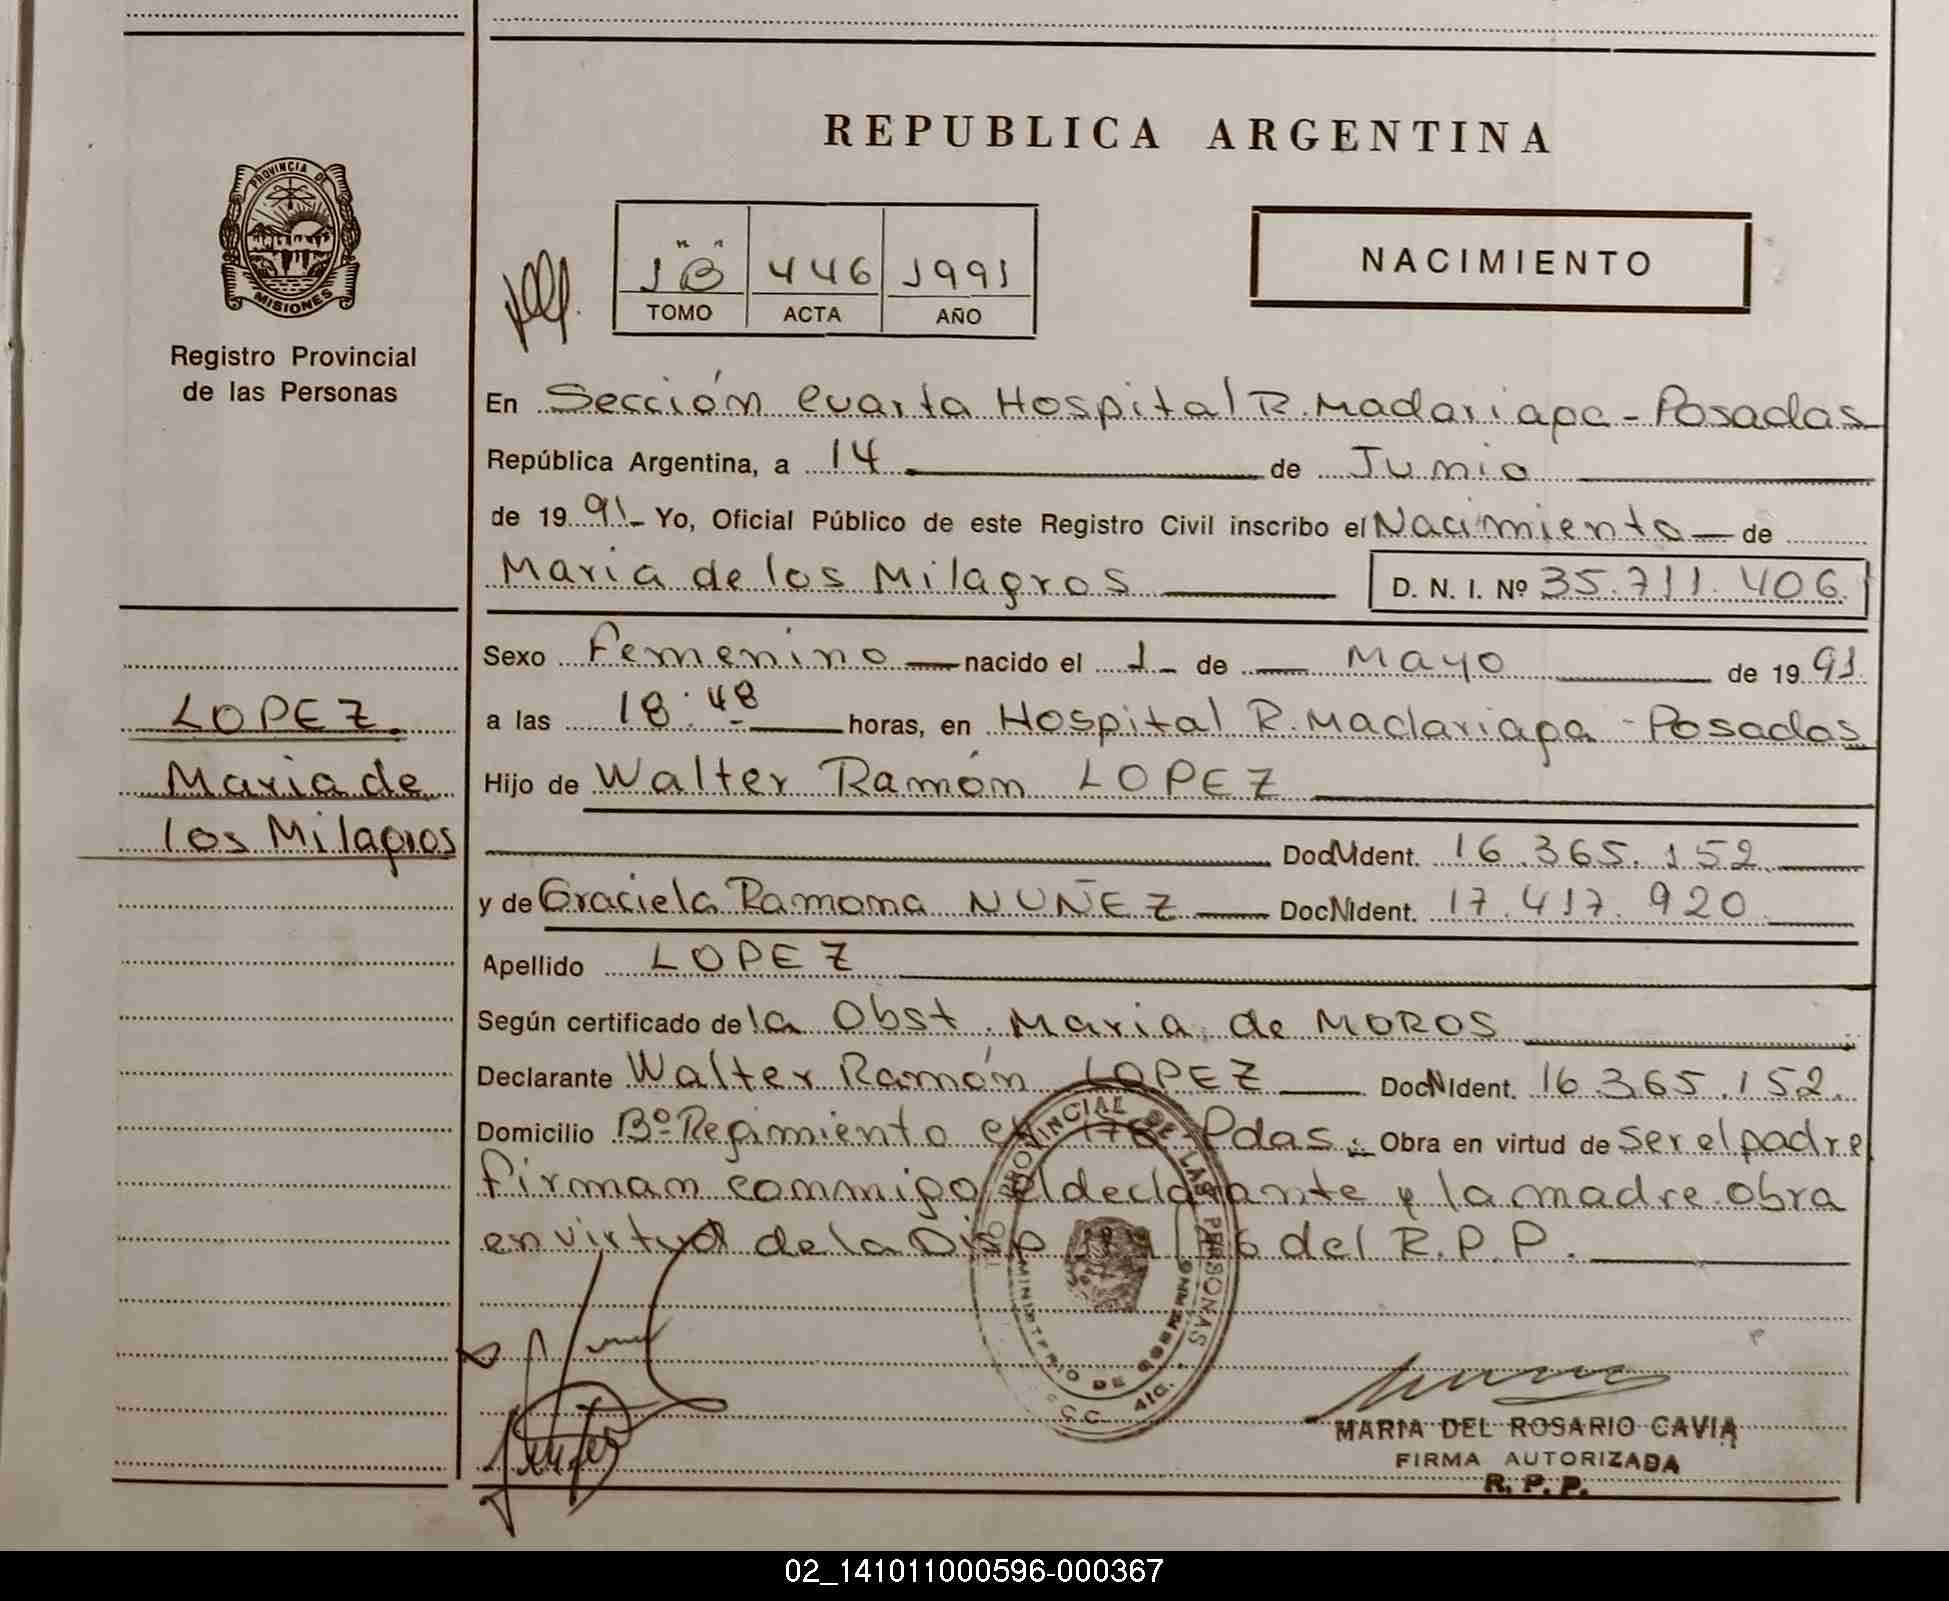 REPUBLICA ARGENTINA
PROVINCIA DE
MISIONES
Registro Provincial
de las Personas
1 "B" 446 1991
TOMO ACTA AÑO
NACIMIENTO
En Sección Cuarta Hospital R. Madariaga - Posadas
República Argentina, a 14 de Junio
de 1991 - Yo, Oficial Público de este Registro Civil inscribo el Nacimiento de
Maria de los Milagros D. N. I. Nº 35.711.406.
Sexo Femenino nacido el 1 de Mayo de 1991.
a las 18:48 horas, en Hospital R. Madariaga - Posadas
Hijo de Walter Ramón LOPEZ
Doc. Ident. 16.365.152
y de Graciela Ramona NUÑEZ Doc. Ident. 17.417.920
Apellido LOPEZ
Según certificado de la Obst. Maria de MOROS
Declarante Walter Ramón LOPEZ Doc. Ident. 16.365.152.
Domicilio Bº Regimiento Pdas. Obra en virtud de ser el padre
firman conmigo el declarante y la madre obra
en virtud de la Disp del R.P.P.
LOPEZ
Maria de
los Milagros
PROVINCIAL DE LAS PERSONAS
MINISTERIO DE GOBIERNO
MARIA DEL ROSARIO CAVIA
FIRMA AUTORIZADA
R. P. P.
02_141011000596-000367